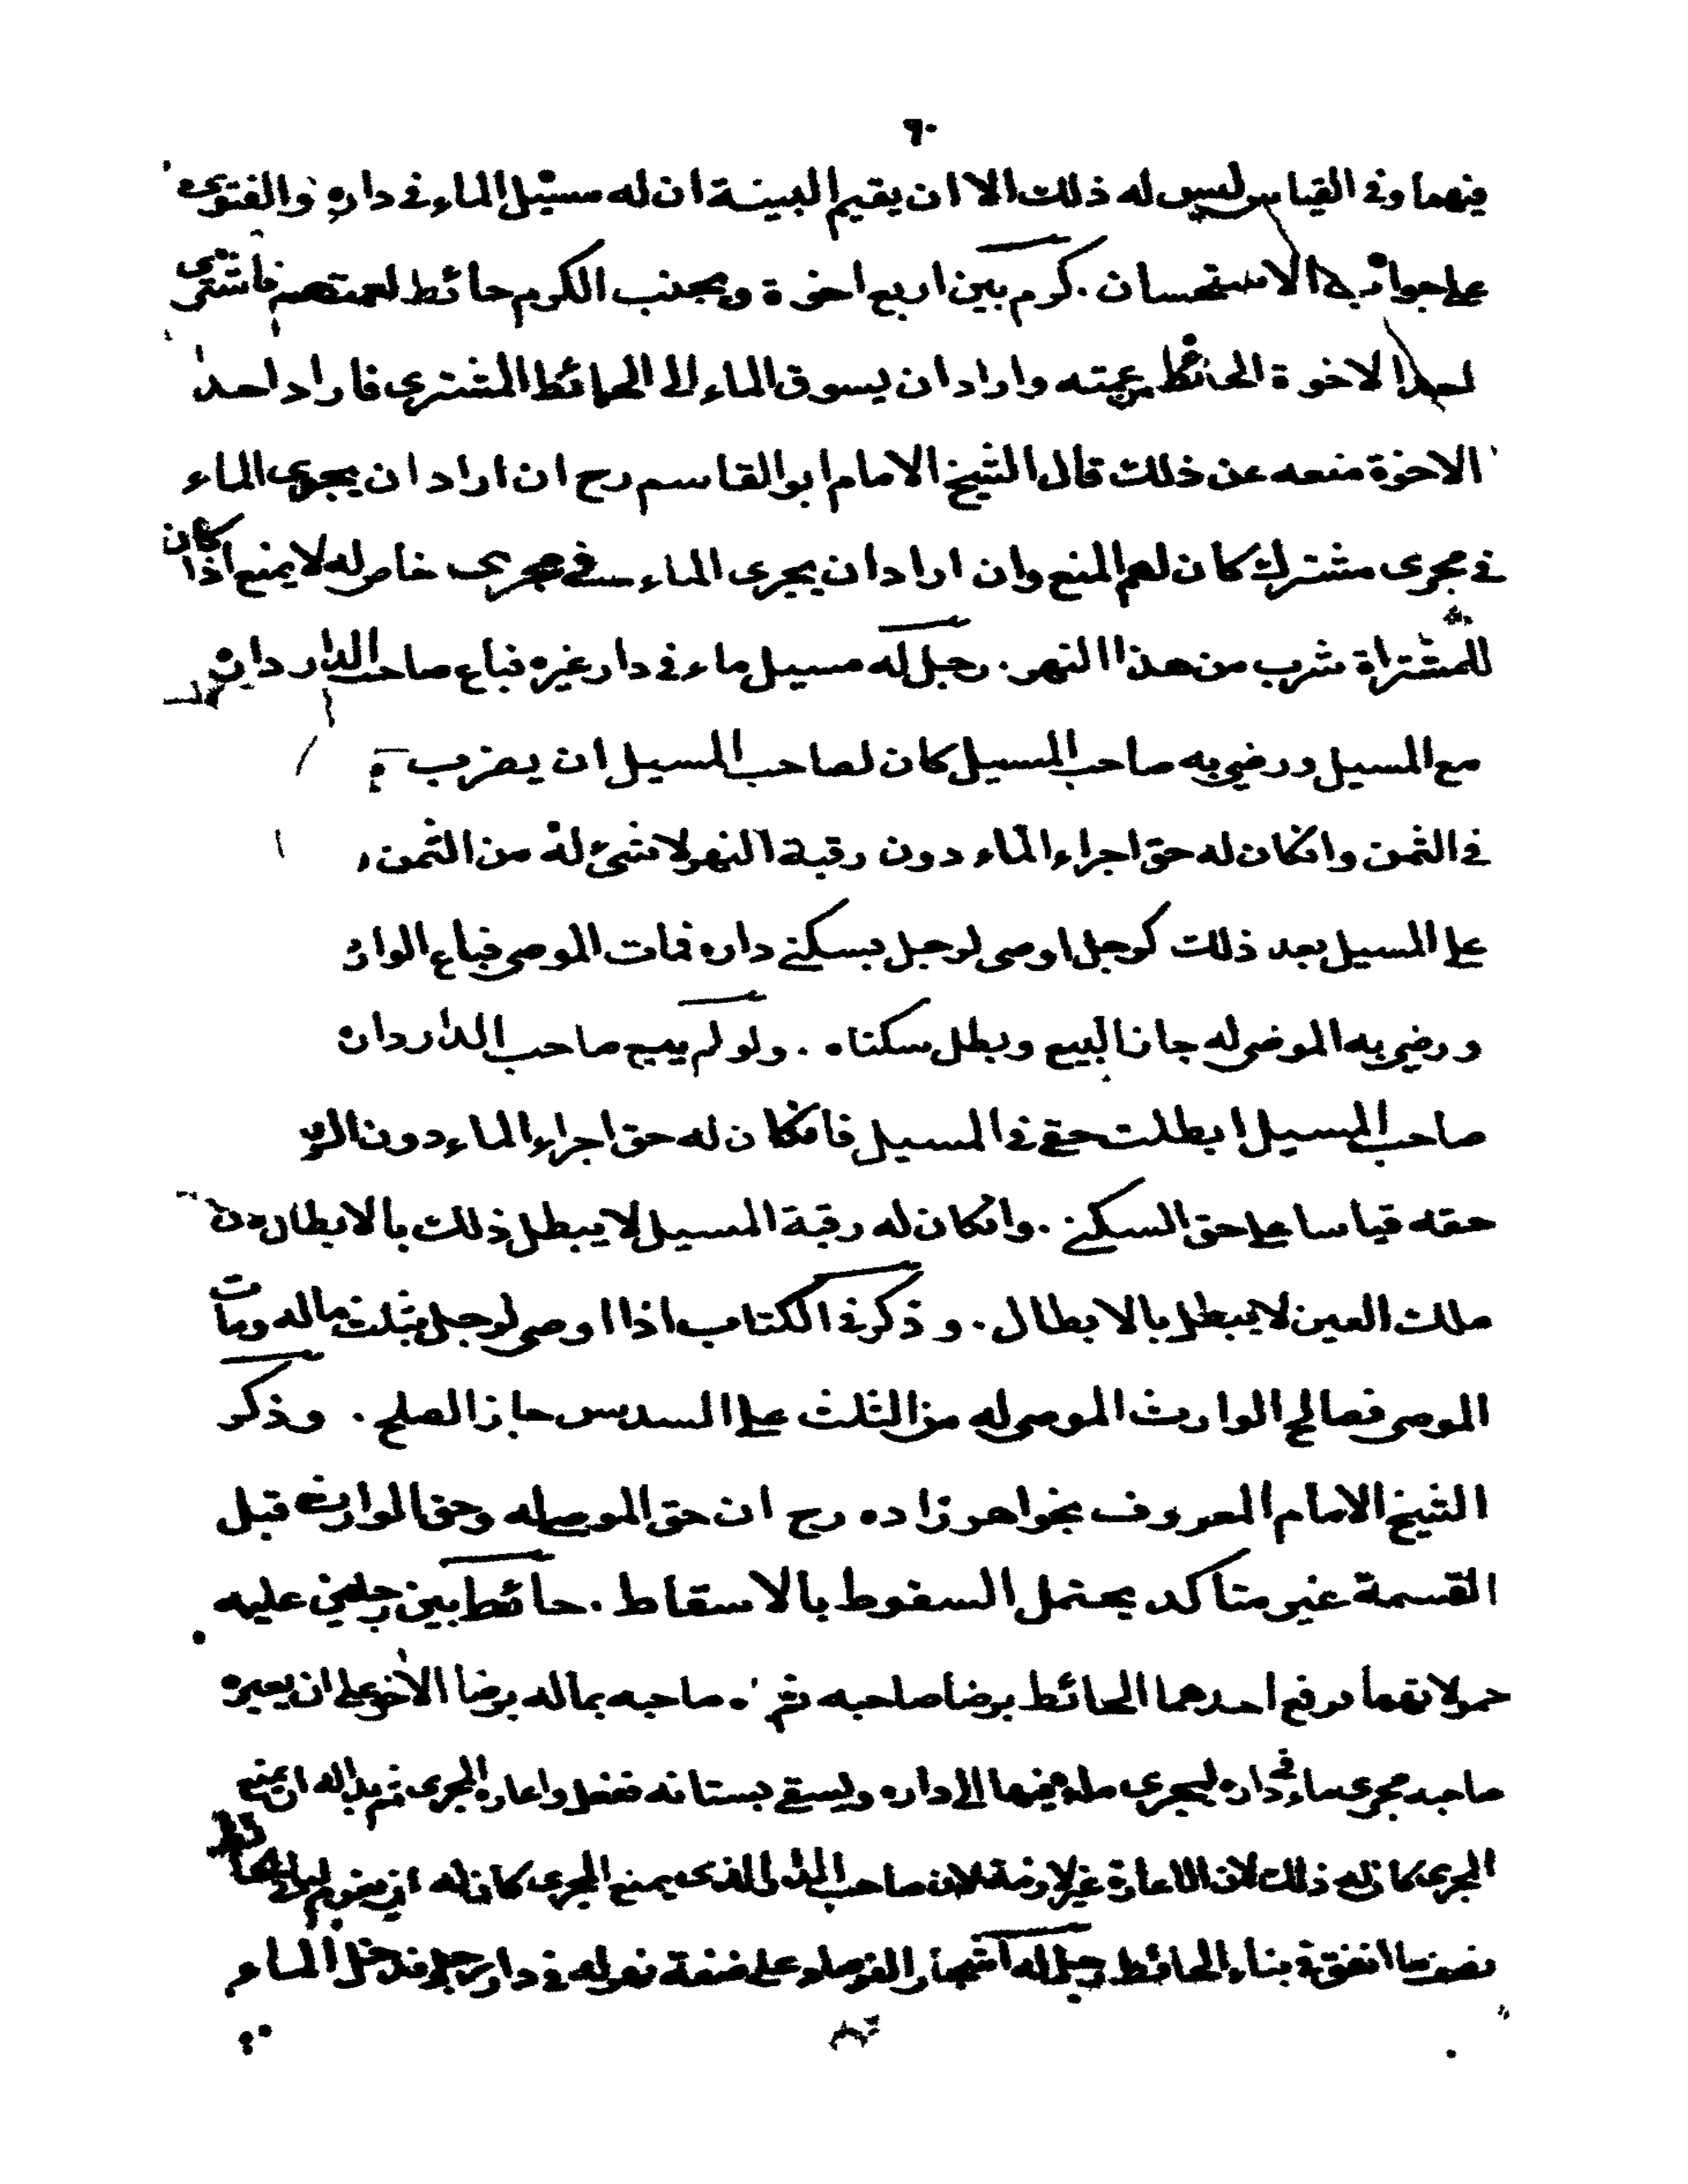 ٦٠
فيهما وفى القياس ليس له ذلك الا ان يقيم البينة ان له مسيل الماء فى داره والفتوى
على جواب الاستحسان . كرم بين اربع اخوة وبجنب الكرم حائط لعمتهم فاشترى
احد الاخوة الحائط من عمته واراد ان يسوق الماء الى الحائط المشترى فاراد احد
الاخوة منعه عن ذلك قال الشيخ الامام ابو القاسم رح ان اراد ان يجرى الماء
فى مجرى مشترك كان لهم المنع وان اراد ان يجرى الماء فى مجرى خاص له لا يمنع اذا كان
للمشتراة شرب من هذا النهر . رجل له مسيل ماء فى دار غيره فباع صاحب الدار داره
مع المسيل ورضى به صاحب المسيل كان لصاحب المسيل ان يضرب
فى الثمن وانكان له حق اجراء الماء دون رقبة النهر لا شئ له من الثمن
على المسيل بعد ذلك كرجل اوصى لرجل بسكنى داره فمات الموصى فباع الوار
ورضى به الموصى له جاز البيع وبطل سكناه . ولو لم يبع صاحب الدار داره
صاحب المسيل ابطلت حقى فى المسيل فانكان له حق اجراء الماء دون الر
حقه قياسا على حق السكنى . وانكان له رقبة المسيل لا يبطل ذلك بالابطال
ملك العين لا يبطل بالابطال . وذكر فى الكتاب اذا اوصى لرجل بثلث ماله ومات
الموصى فصالح الوارث الموصى له من الثلث على السدس جاز الصلح . وذكر
الشيخ الامام المعروف بخواهر زاده رح ان حق الموصى له وحق الوارث قبل
القسمة غير متاكد يحتمل السقوط بالاسقاط . حائط بين رجلين عليه
حمولاتهما فرفع احدهما الحائط برضا صاحبه ثم صاحبه بماله برضا الآخر على ان يعيره
صاحبه مجرى ماء فى داره ليجرى ماءه فيها الى داره ويسقى بستانه ففعل واعاره المجرى ثم بدا له ان يمنع
المجرى كان له ذلك لان الاعارة غير لازمة لان صاحب الدار الذى يمنع المجرى كان له ان يغرم لبانى الحائط
نصف ما انفق فى بناء الحائط رجل له اشجار الفرصاد على ضفة نهر له فى دار رجل فدخل الماء